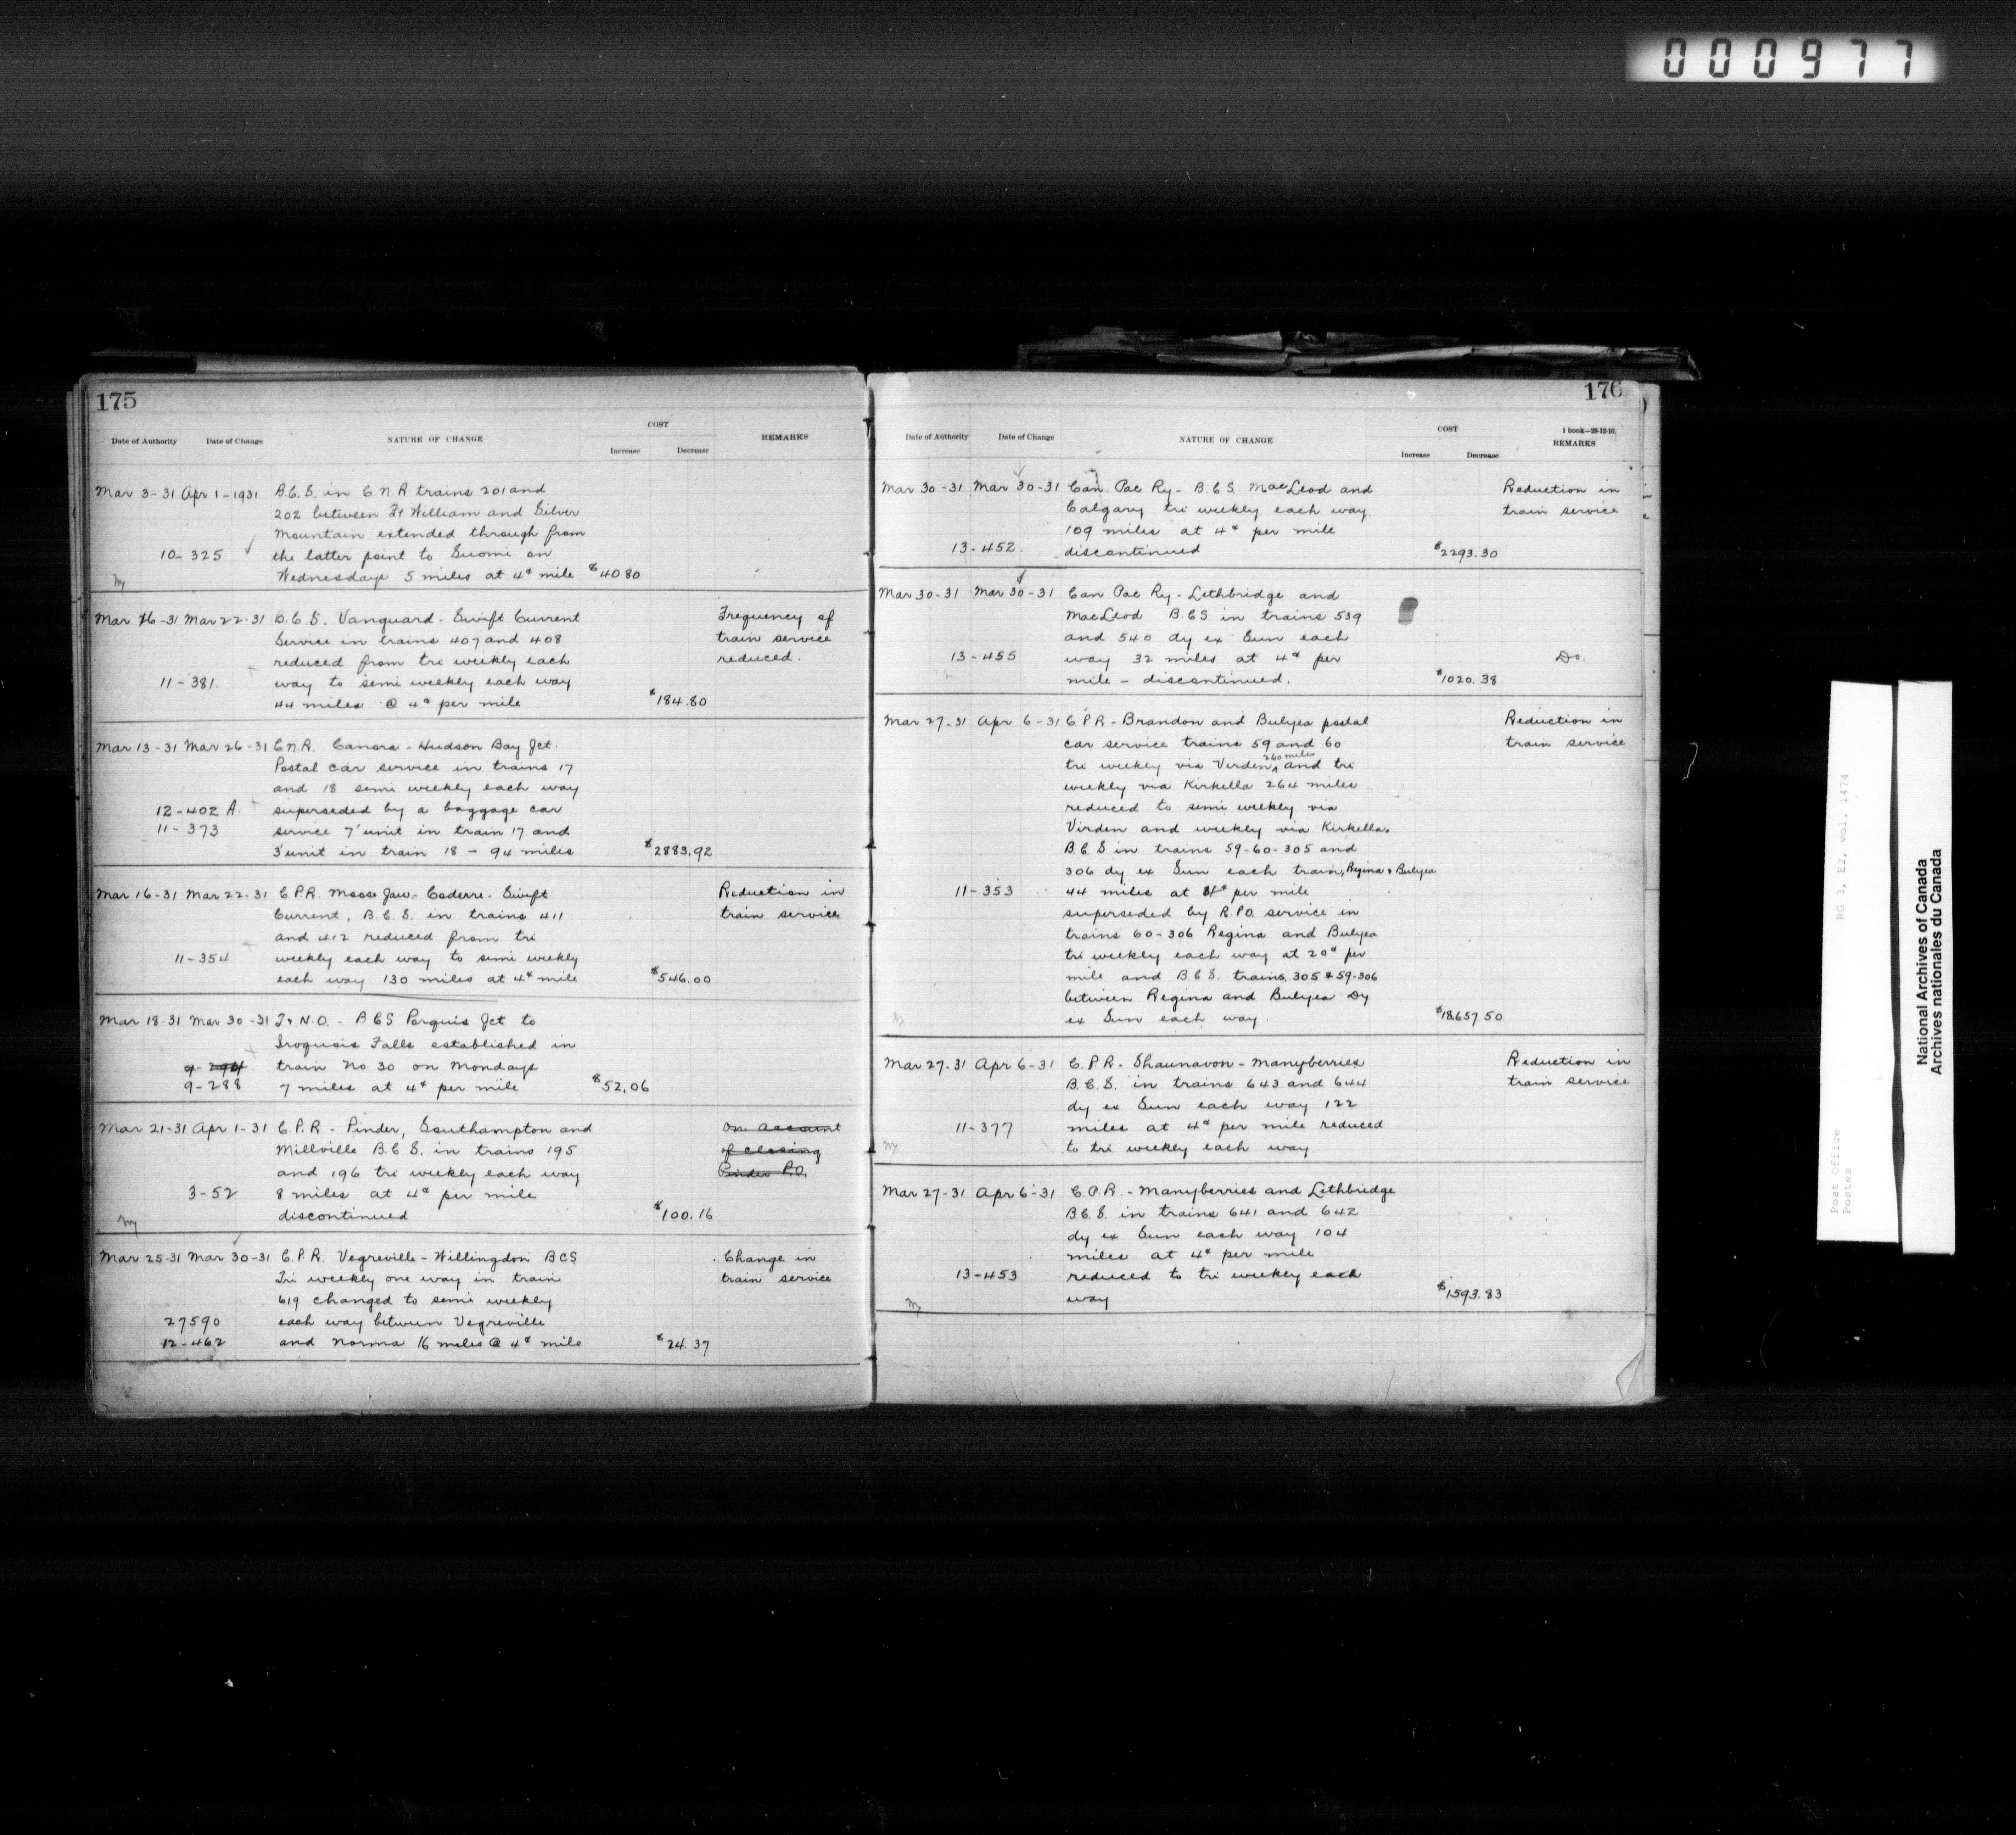 000977
175
Date of Authority Date of Change NATURE OF CHANGE COST Increase Decrease REMARKS
Mar 3-31 Apr 1-1931 B.C.S. in C.N.R trains 201 and
202 between Ft William and Silver
Mountain extended through from
10-325 the latter point to Suomi on
Wednesdays 5 miles at 4¢ mile $40 80
Mar 16-31 Mar 22-31 B.C.S. Vanguard - Swift Current Frequency of
Service in trains 407 and 408 train service
reduced from tri weekly each reduced.
11-381. way to semi weekly each way
44 miles @ 4¢ per mile $184.80
Mar 13-31 Mar 26-31 C.N.R. Canora - Hudson Bay Jct.
Postal car service in trains 17
and 18 semi weekly each way
12-402 A. superseded by a baggage car
11-373 service 7' unit in train 17 and
3' unit in train 18 - 94 miles $2883.92
Mar 16-31 Mar 22-31 C.P.R. Moose Jaw - Coderre - Swift Reduction in
Current, B.C.S. in trains 411 train service
and 412 reduced from tri
11-354 weekly each way to semi weekly
each way 130 miles at 4¢ mile $546.00
Mar 18-31 Mar 30-31 T & N.O. - BCS Porquis Jct to
Iroquois Falls established in
9-294 train No 30 on Mondays
9-288 7 miles at 4¢ per mile $52.06
Mar 21-31 Apr 1-31 C.P.R - Pinder, Southampton and On account
Millville B.C.S. in trains 195 of closing
and 196 tri weekly each way Pinder P.O.
3-52 8 miles at 4¢ per mile
discontinued $100.16
Mar 25-31 Mar 30-31 C.P.R. Vegreville - Willingdon BCS Change in
Tri weekly one way in train train service
619 changed to semi weekly
27590 each way between Vegreville
12-462 and Norma 16 miles @ 4¢ mile $24.37
176
1 book-28-12-10.
Date of Authority Date of Change NATURE OF CHANGE COST Increase Decrease REMARKS
Mar 30-31 Mar 30-31 Can. Pac Ry - B.C.S. MacLeod and Reduction in
Calgary tri weekly each way train service
109 miles at 4¢ per mile
13-452. discontinued $2293.30
Mar 30-31 Mar 30-31 Can Pac Ry - Lethbridge and
MacLeod B.C.S in trains 539
and 540 dy ex Sun each
13-455 way 32 miles at 4¢ per Do.
mile - discontinued. $1020.38
Mar 27-31 Apr 6-31 C.P.R - Brandon and Bulyea postal Reduction in
car service trains 59 and 60 train service
tri weekly via Virden 260 miles and tri
weekly via Kirkella 264 miles
reduced to semi weekly via
Virden and weekly via Kirkella.
B.C.S in trains 59-60-305 and
306 dy ex Sun each train, Regina & Bulyea
11-353 44 miles at 4¢ per mile
superseded by R.P.O. service in
trains 60-306 Regina and Bulyea
tri weekly each way at 20¢ per
mile and B.C.S. trains 305 & 59-306
between Regina and Bulyea Dy
ex Sun each way. $18,657 50
Mar 27-31 Apr 6-31 C.P.R. Shaunavon - Manyberries Reduction in
B.C.S. in trains 643 and 644 train service
dy ex Sun each way 122
11-377 miles at 4¢ per mile reduced
to tri weekly each way
Mar 27-31 Apr 6-31 C.P.R. - Manyberries and Lethbridge
B.C.S. in trains 641 and 642
dy ex Sun each way 104
miles at 4¢ per mile
13-453 reduced to tri weekly each
way $1593.83
Post Office RG 3, E2, vol. 1474
Postes
National Archives of Canada
Archives nationales du Canada